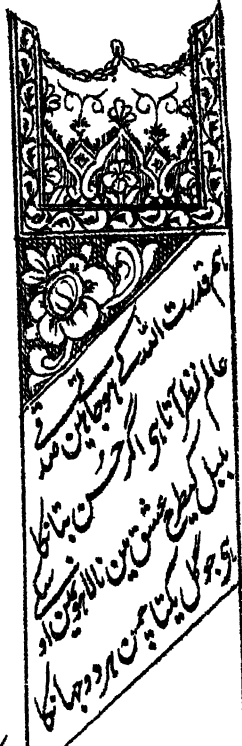 ہم قدرت اللہ کے ہو جاتے ہین صدقے
عالم نظر آتا ہی اگر حسن بتانکا
بلبل کیطرح عشق مین نالا ہونمین اوسکے
ہی جو گل یکتا چمن ہر دو جہانکا